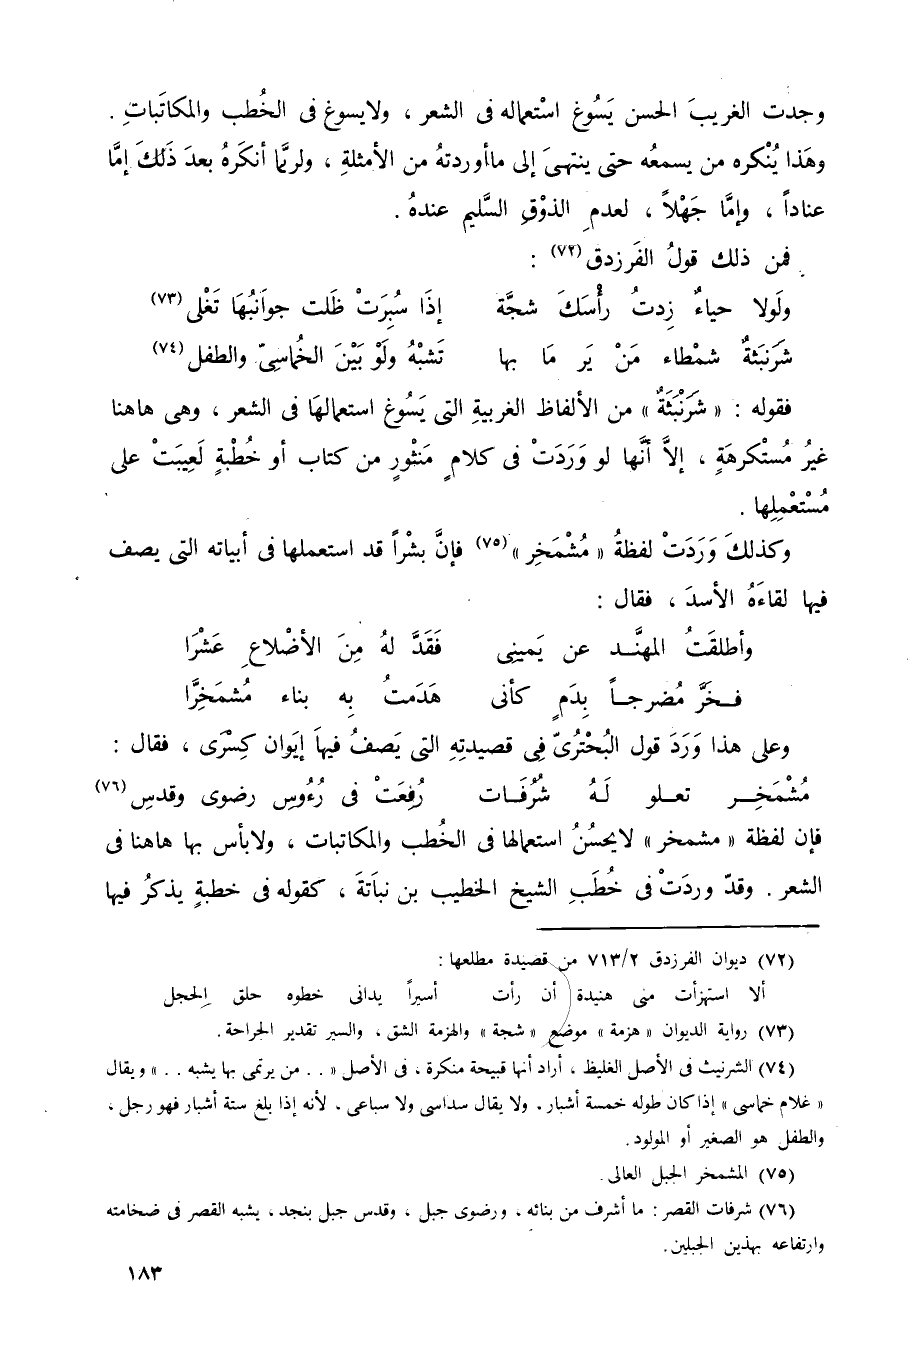 وجدت الغريبَ الحسن يَسُوغ استْعماله فى الشعر ، ولايسوغ فى الخُطب والمكاتَباتِ .
وهَذا يُنْكره من يسمعُه حتى ينتهىَ إلى ماأوردتهُ من الأمثلةِ ، ولربَّما أنكَرهُ بعدَ ذَلكَ إمَّا
عناداً ، وإمَّا جَهْلاً ، لعدمِ الذوْقِ السَّليم عندهُ .
فمن ذلك قولُ الفَرزدق (٧٢) :
ولَولا حياءٌ زِدتُ رأْسَكَ شجَّة إذَا سُبِرَتْ ظَلت جوانبُهَا تَغْلى (٧٣)
شَرَنبَثةٌ شمْطاء مَنْ يَر مَا بها تَشبْهُ ولَوْ بَيْنَ الخُماسِىّ والطفل (٧٤)
فقوله : « شَرَنْبَثَةٌ » من الألفاظ الغريبةِ التى يَسُوغ استعمالهَا فى الشعر ، وهى هاهنا
غيرُ مُستْكرهَةٍ ، إلاَّ أنَّها لو وَرَدَتْ فى كلامٍ مَنثْورٍ من كتاب أو خُطْبةٍ لَعيبَتْ على
مُستْعْمِلِها .
وكذلكَ وَرَدَتْ لفظةُ « مُشْمَخِر » (٧٥) فإنَّ بشْراً قد استعملها فى أبياته التى يصف
فيها لقاءَهُ الأسدَ ، فقال :
وأطلقَتُ المهنَّـد عن يَمينِى فَقَدَّ لهُ مِنَ الأضْلاعِ عَشْرَا
فـخرَّ مُضرجـاً بِدَمٍ كأنى هَدَمتُ بِه بناء مُشمَخِرَّا
وعلى هذا وَرَدَ قول البُحْترُىّ فِى قصيدتِهِ التى يَصفُ فيهاَ إيَوان كِسْرَى ، فقال :
مُشْمَخِــر تعـلو لَـهُ شُرُفَـات رُفِعَتْ فى رُءُوسِ رضوى وقدسِ (٧٦)
فإن لفظة « مشمخر » لايحسُنُ استعمالها فى الخُطب والمكاتبات ، ولابأس بها هاهنا فى
الشعر . وقدّ وردَتْ فى خُطَبِ الشيخ الخطيب بن نباَتةَ ، كقوله فى خطبةٍ يذكرُ فيها
(٧٢) ديوان الفرزدق ٧١٣/٢ من قصيدة مطلعها :
ألا استهزأت منى هنيدة أن رأت أسيراً يدانى خطوه حلق الحجل
(٧٣) رواية الديوان « هزمة » موضع « شجة » والهزمة الشق ، والسبر تقدير الجراحة .
(٧٤) الشرنبث فى الأصل الغليظ ، أراد أنها قبيحة منكرة ، فى الأصل « . . من يرتمى بها يشبه . . » ويقال
« غلام خماسى » إذا كان طوله خمسة أشبار . ولا يقال سداسى ولا سباعى . لأنه إذا بلغ ستة أشبار فهو رجل ،
والطفل هو الصغير أو المولود .
(٧٥) المشمخر الجبل العالى .
(٧٦) شرفات القصر : ما أشرف من بنائه ، ورضوى جبل ، وقدس جبل بنجد ، يشبه القصر فى ضخامته
وارتفاعه بهذين الجبلين .
١٨٣